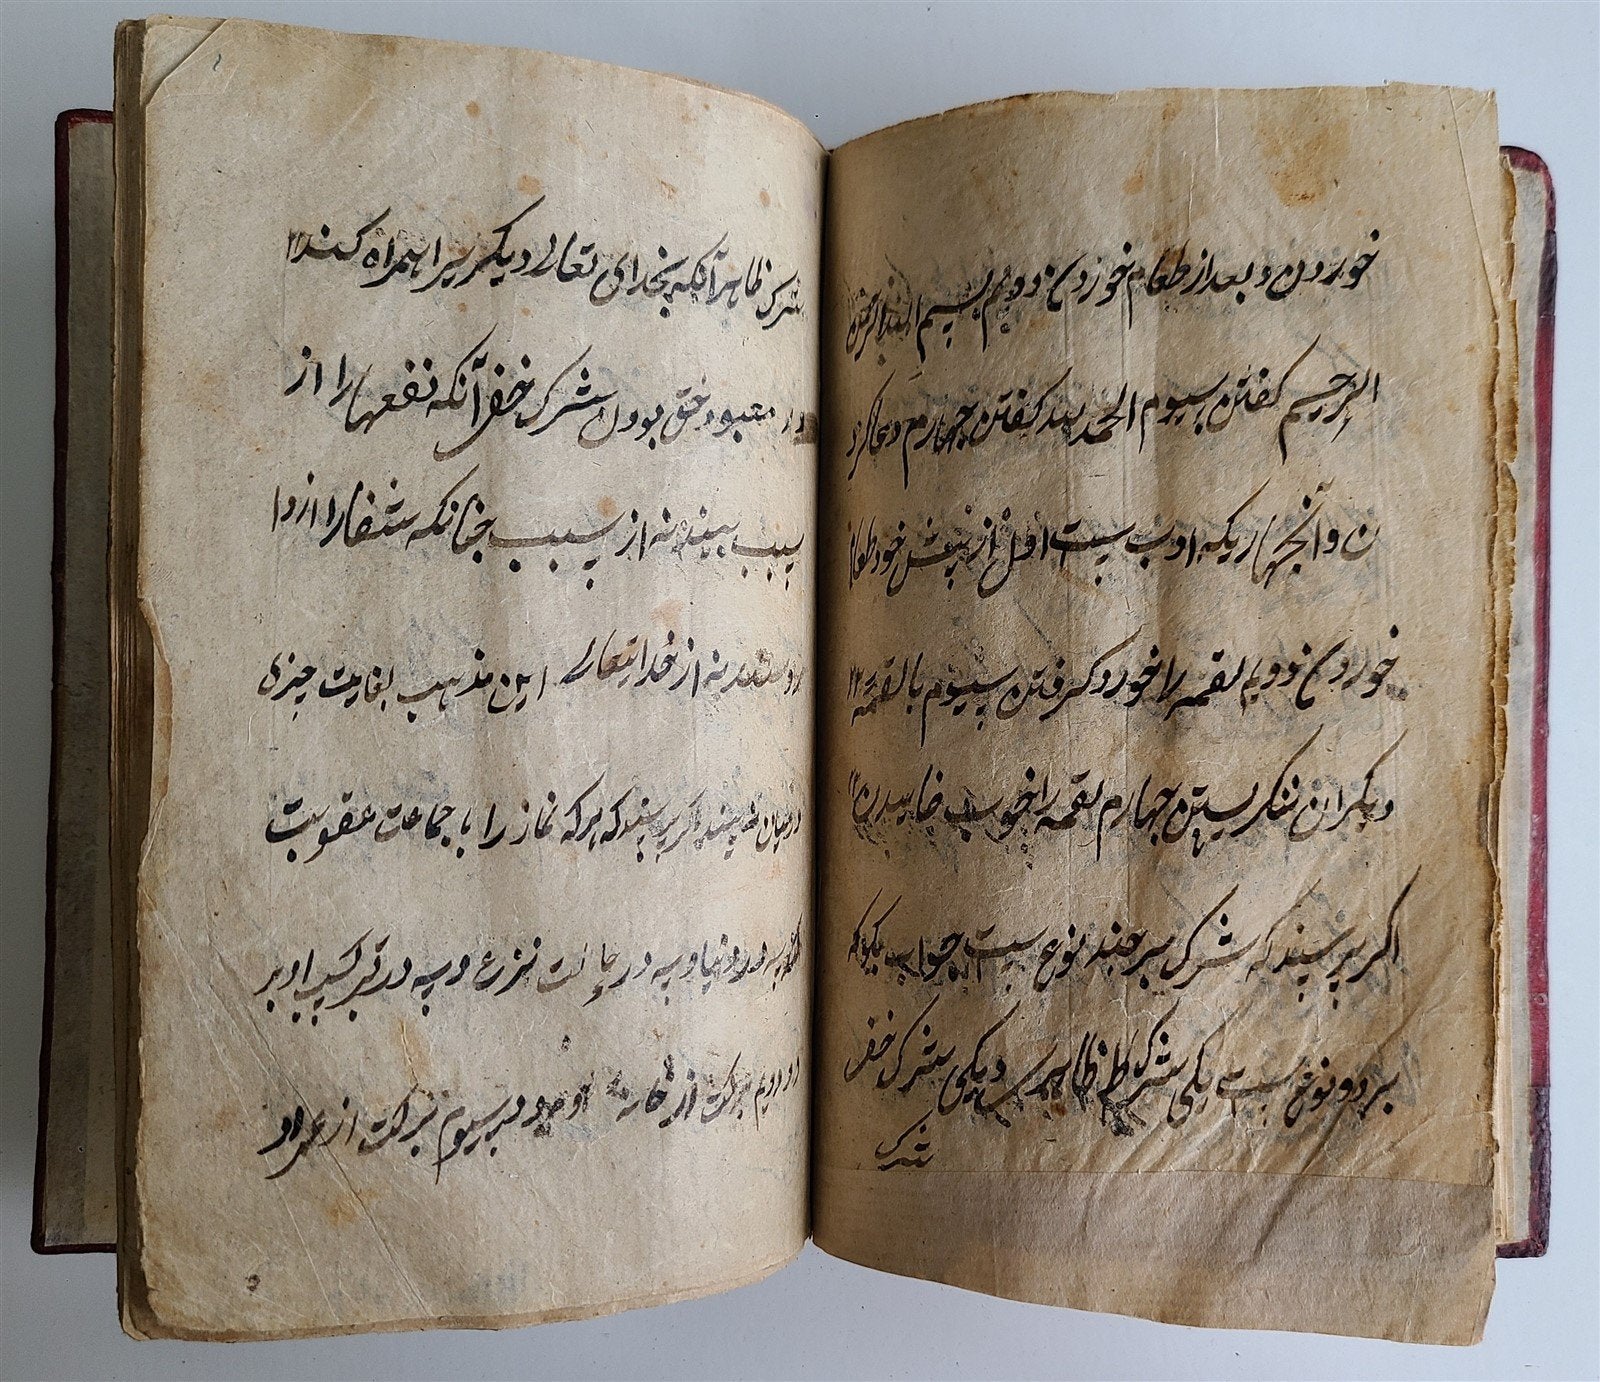 خوردن و بعد از طعام خوردن دویم بسیم الله الرحمن
الرحیم کفتن سیوم الحمد لله کفتن چهارم دعا کرد
ن و آنچهار یکه ادب ست اول از پیش خود طعام
خوردن دویم لقمه را خورد کرفتن سیوم با لقمه
دیکران ننکریستن چهارم لقمه را خوب خاییدن
اکر پرسند که شرک بر چند نوع ست جواب بکو که
بر دو نوع ست یکی شرک ظاهر و یکی شرک خفی
شرک
شرک ظاهر آنکه بخدای تعالی دیکریرا همراه کند
در معبود حق بودن شرک خفی آنکه نفعها را از
سبب بیند نه از مسبب چنانکه شفا را از دا
رو نه از خدایتعالی این مذهب بغایت چیزی
درمیان اکر پرسند که هر که نماز را با جماعت عقوبت
چه در دنیا و چه در حالت نزع و چه در قبر کسب او بر
دویم برکت از خانه او برود سیوم برکت از عمر او